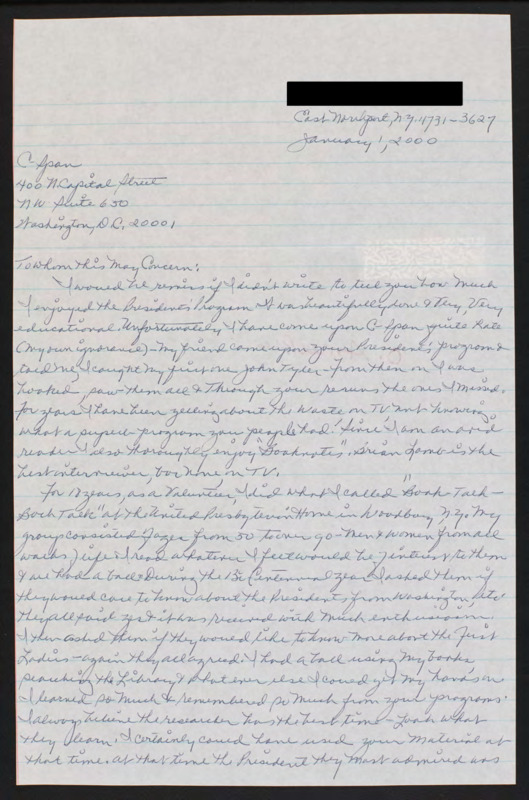 East Northport, N.Y. 11731-3627
January 1, 2000
C-Span
400 N. Capital Street
NW Suite 650
Washington, D.C. 20001
To Whom this May Concern:
I would be remiss if I didn't write to tell you how much
I enjoyed the Presidents' Program. It was beautifully done & Very, Very
educational. Unfortunately I have come upon C-Span quite late
(my own ignorance) - My friend came upon your Presidents' program &
told me, I caught my first one John Tyler - From then on I was
hooked, saw them all & through your reruns the ones I missed.
For years I have been yelling about the waste on TV not knowing
what a super-program you people had. Since I am an avid
reader I also thoroughly enjoy "Booknotes". Brian Lamb is the
best interviewer, bar none on TV.
For years, as a Volunteer, I did what I called "Book Talk -
Back Talk" at the United Presbyterian Home in Woodbury, N.Y. My
group consisted of ages from 50 to over 90 - Men & women from all
walks of life. I read whatever I felt would be of interest to them
& we had a ball. During the Bi Centennial year I asked them if
they would care to know about the Presidents, from Washington, etc.
They all said yes & it was received with much enthusiasm.
I then asked them if they would like to know more about the First
Ladies - again they all agreed. I had a ball using my books,
searching the Library & whatever else I could get my hands on
I learned so much & remembered so much from your programs.
I always believe the researcher has the best time - Look what
they learn. I certainly could have used your material at
that time. At that time the President they most admired was